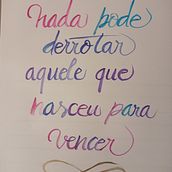 nada pode
derrotar
aquele que
nasceu para
vencer